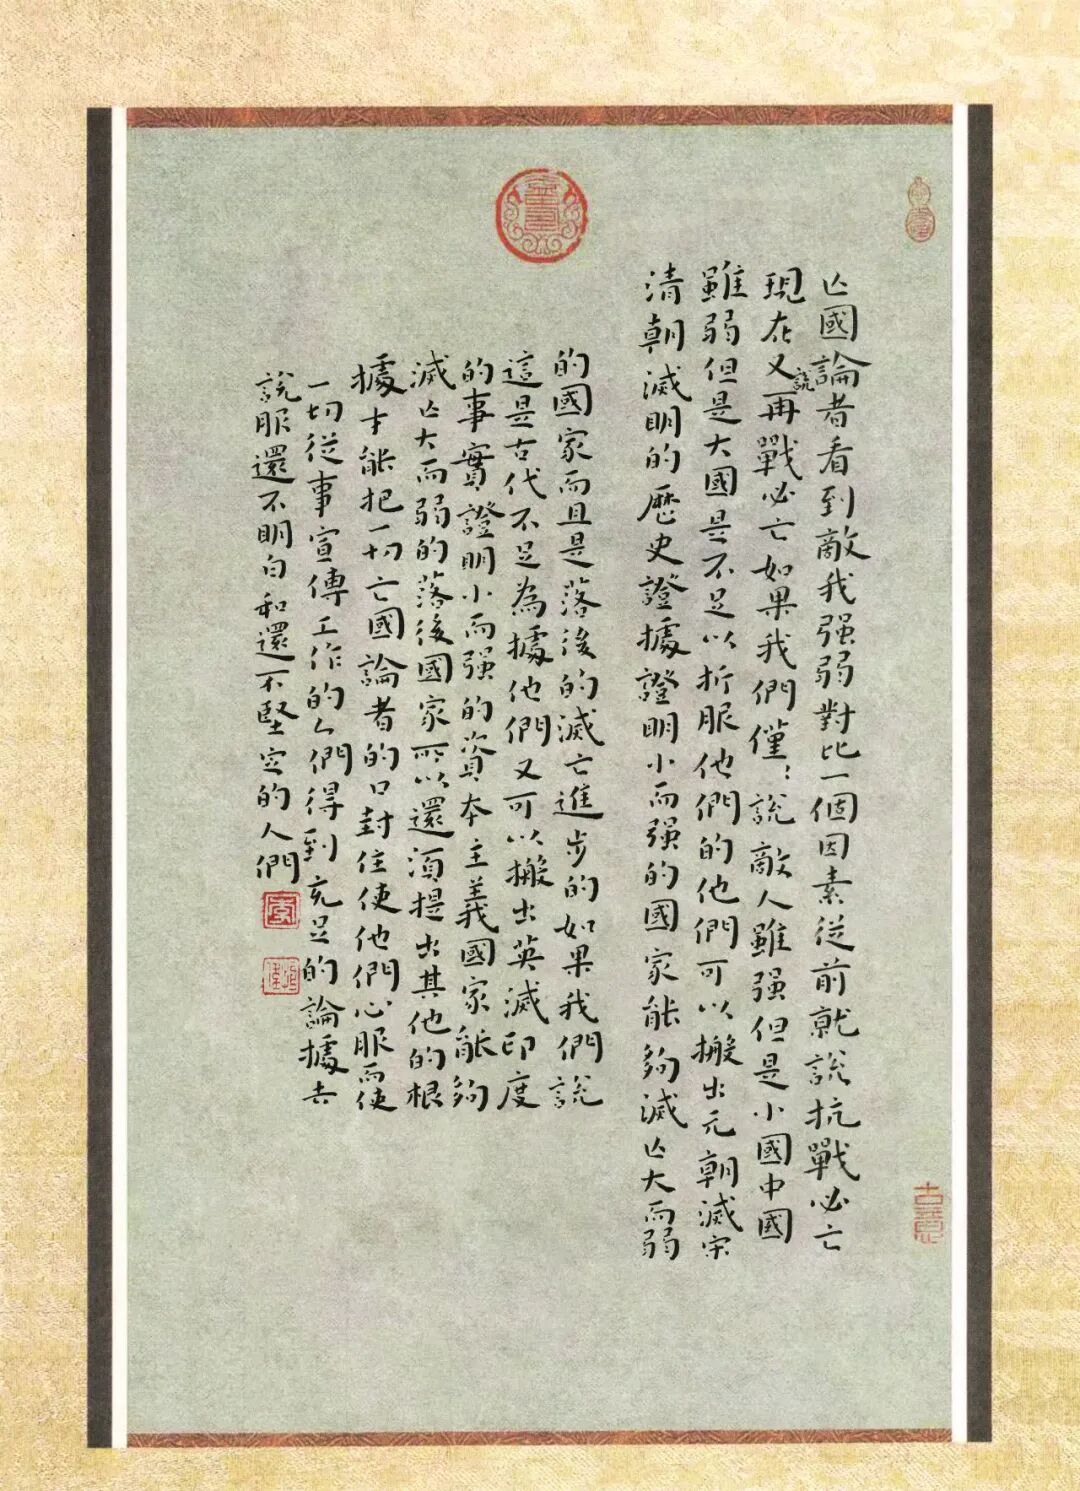 亾國論者看到敵我强弱對比一個因素從前就說抗戰必亡
現在又說再戰必亡如果我們僅:說敵人雖强但是小國中國
雖弱但是大國是不足以折服他們的他們可以搬出元朝滅宋
清朝滅明的歷史證據證明小而强的國家能夠滅亾大而弱
的國家而且是落後的滅亡進步的如果我們說
這是古代不足為據他們又可以搬出英滅印度
的事實證明小而强的資本主義國家能夠
滅亾大而弱的落後國家所以還須提出其他的根
據才能把一切亡國論者的口封住使他們心服而使
一切從事宣傳工作的人們得到充足的論據去
說服還不明白和還不堅定的人們
古意